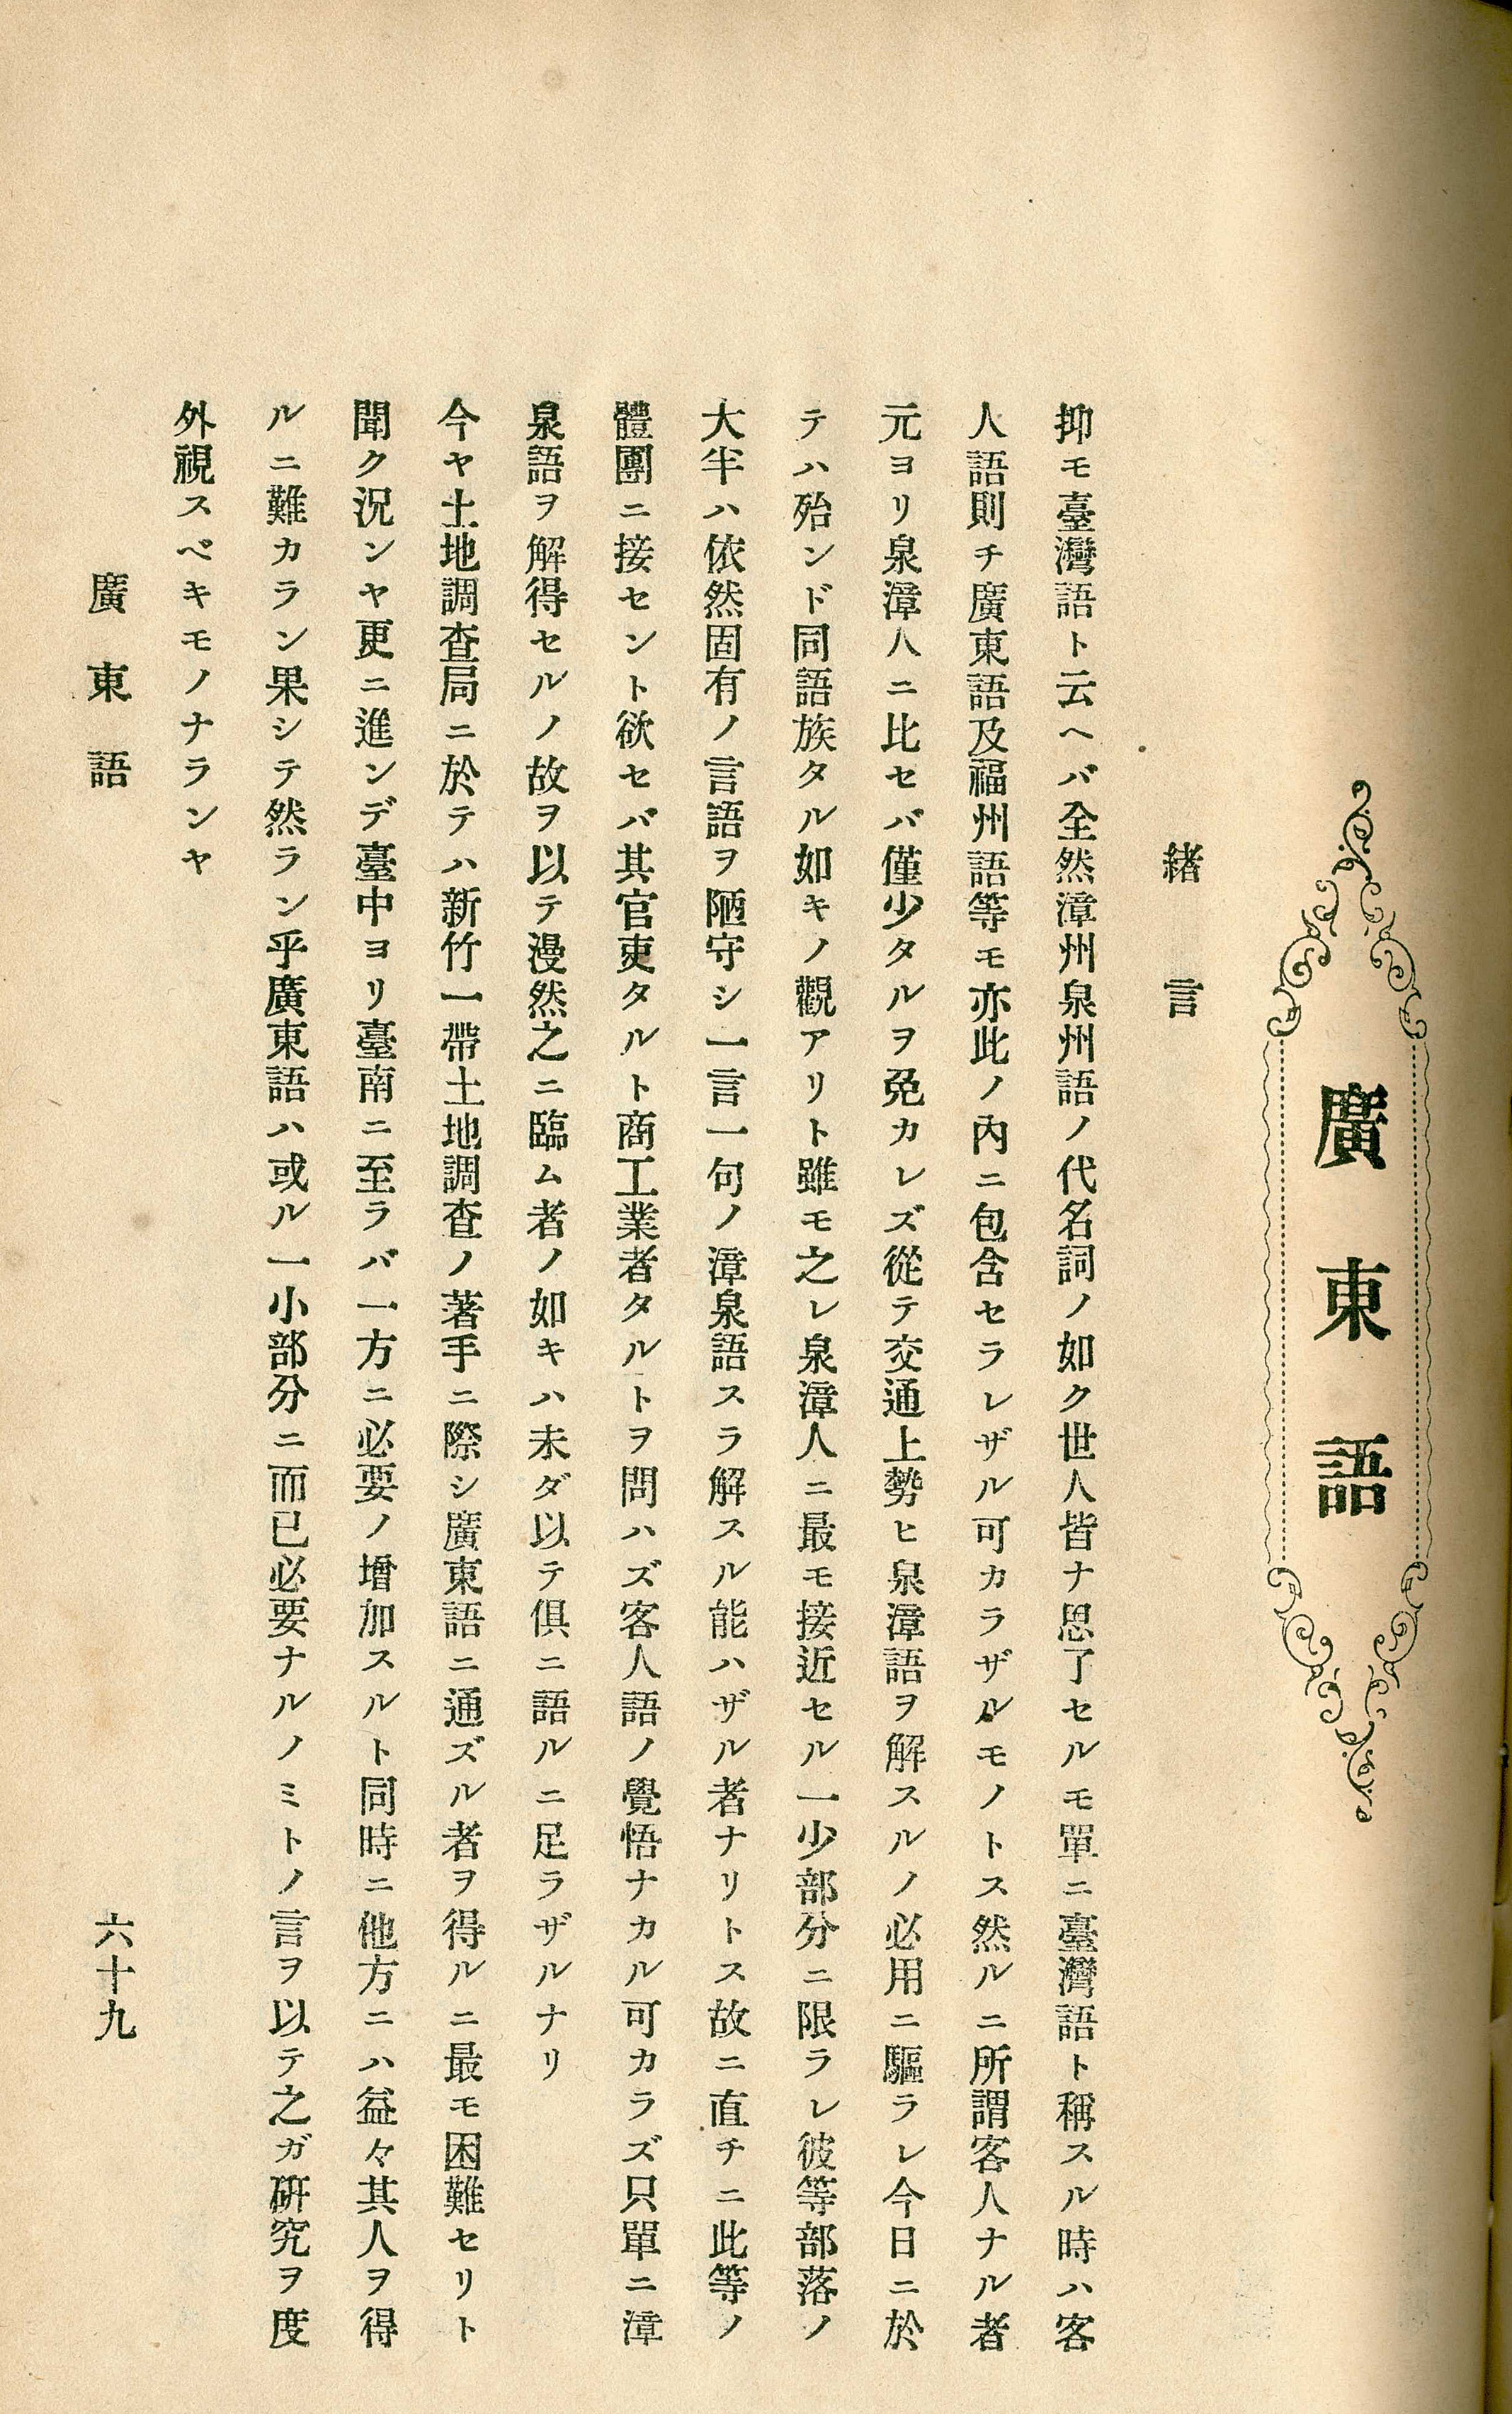 廣東語
緖言
抑モ臺灣語ト云ヘバ全然漳州泉州語ノ代名詞ノ如ク世人皆ナ思了セルモ單ニ臺灣語ト稱スル時ハ客
人語則チ廣東語及福州語等モ亦此ノ內ニ包含セラレザル可カラザルモノトス然ルニ所謂客人ナル者
元ヨリ泉漳人ニ比セバ僅少タルヲ免カレズ從テ交通上勢ヒ泉漳語ヲ解スルノ必用ニ驅ラレ今日ニ於
テハ殆ンド同語族タル如キノ觀アリト雖モ之レ泉漳人ニ最モ接近セル一少部分ニ限ラレ彼等部落ノ
大半ハ依然固有ノ言語ヲ陋守シ一言一句ノ漳泉語スラ解スル能ハザル者ナリトス故ニ直チニ此等ノ
體團ニ接セント欲セバ其官吏タルト商工業者タルトヲ問ハズ客人語ノ覺悟ナカル可カラズ只單ニ漳
泉語ヲ解得セルノ故ヲ以テ漫然之ニ臨ム者ノ如キハ未ダ以テ俱ニ語ルニ足ラザルナリ
今ヤ土地調查局ニ於テハ新竹一帶土地調查ノ著手ニ際シ廣東語ニ通ズル者ヲ得ルニ最モ困難セリト
聞ク況ンヤ更ニ進ンデ臺中ヨリ臺南ニ至ラバ一方ニ必要ノ增加スルト同時ニ他方ニハ益々其人ヲ得
ルニ難カラン果シテ然ラン乎廣東語ハ或ル一小部分ニ而已必要ナルノミトノ言ヲ以テ之ガ硏究ヲ度
外視スベキモノナランヤ
廣東語
六十九